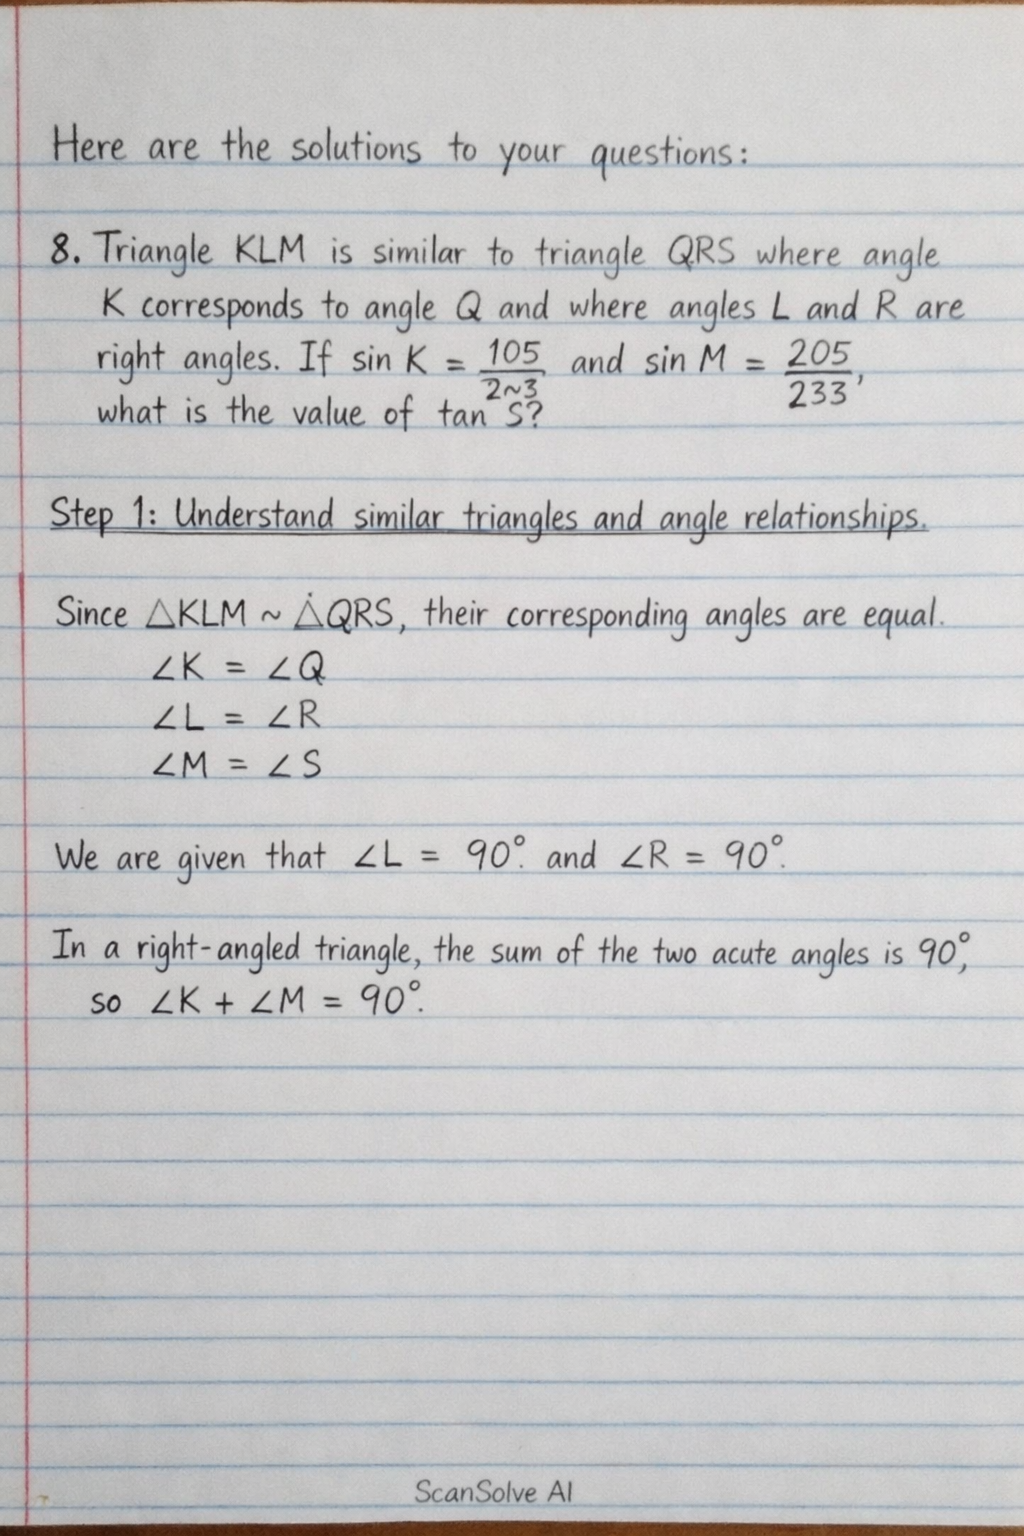 Here are the solutions to your questions:
8. Triangle KLM is similar to triangle QRS where angle
K corresponds to angle Q and where angles L and R are
right angles. If sin K = 105/2~3 and sin M = 205/233,
what is the value of tan S?
Step 1: Understand similar triangles and angle relationships.
Since △KLM ~ △QRS, their corresponding angles are equal.
∠K = ∠Q
∠L = ∠R
∠M = ∠S
We are given that ∠L = 90°. and ∠R = 90°.
In a right-angled triangle, the sum of the two acute angles is 90°,
so ∠K + ∠M = 90°.
ScanSolve AI